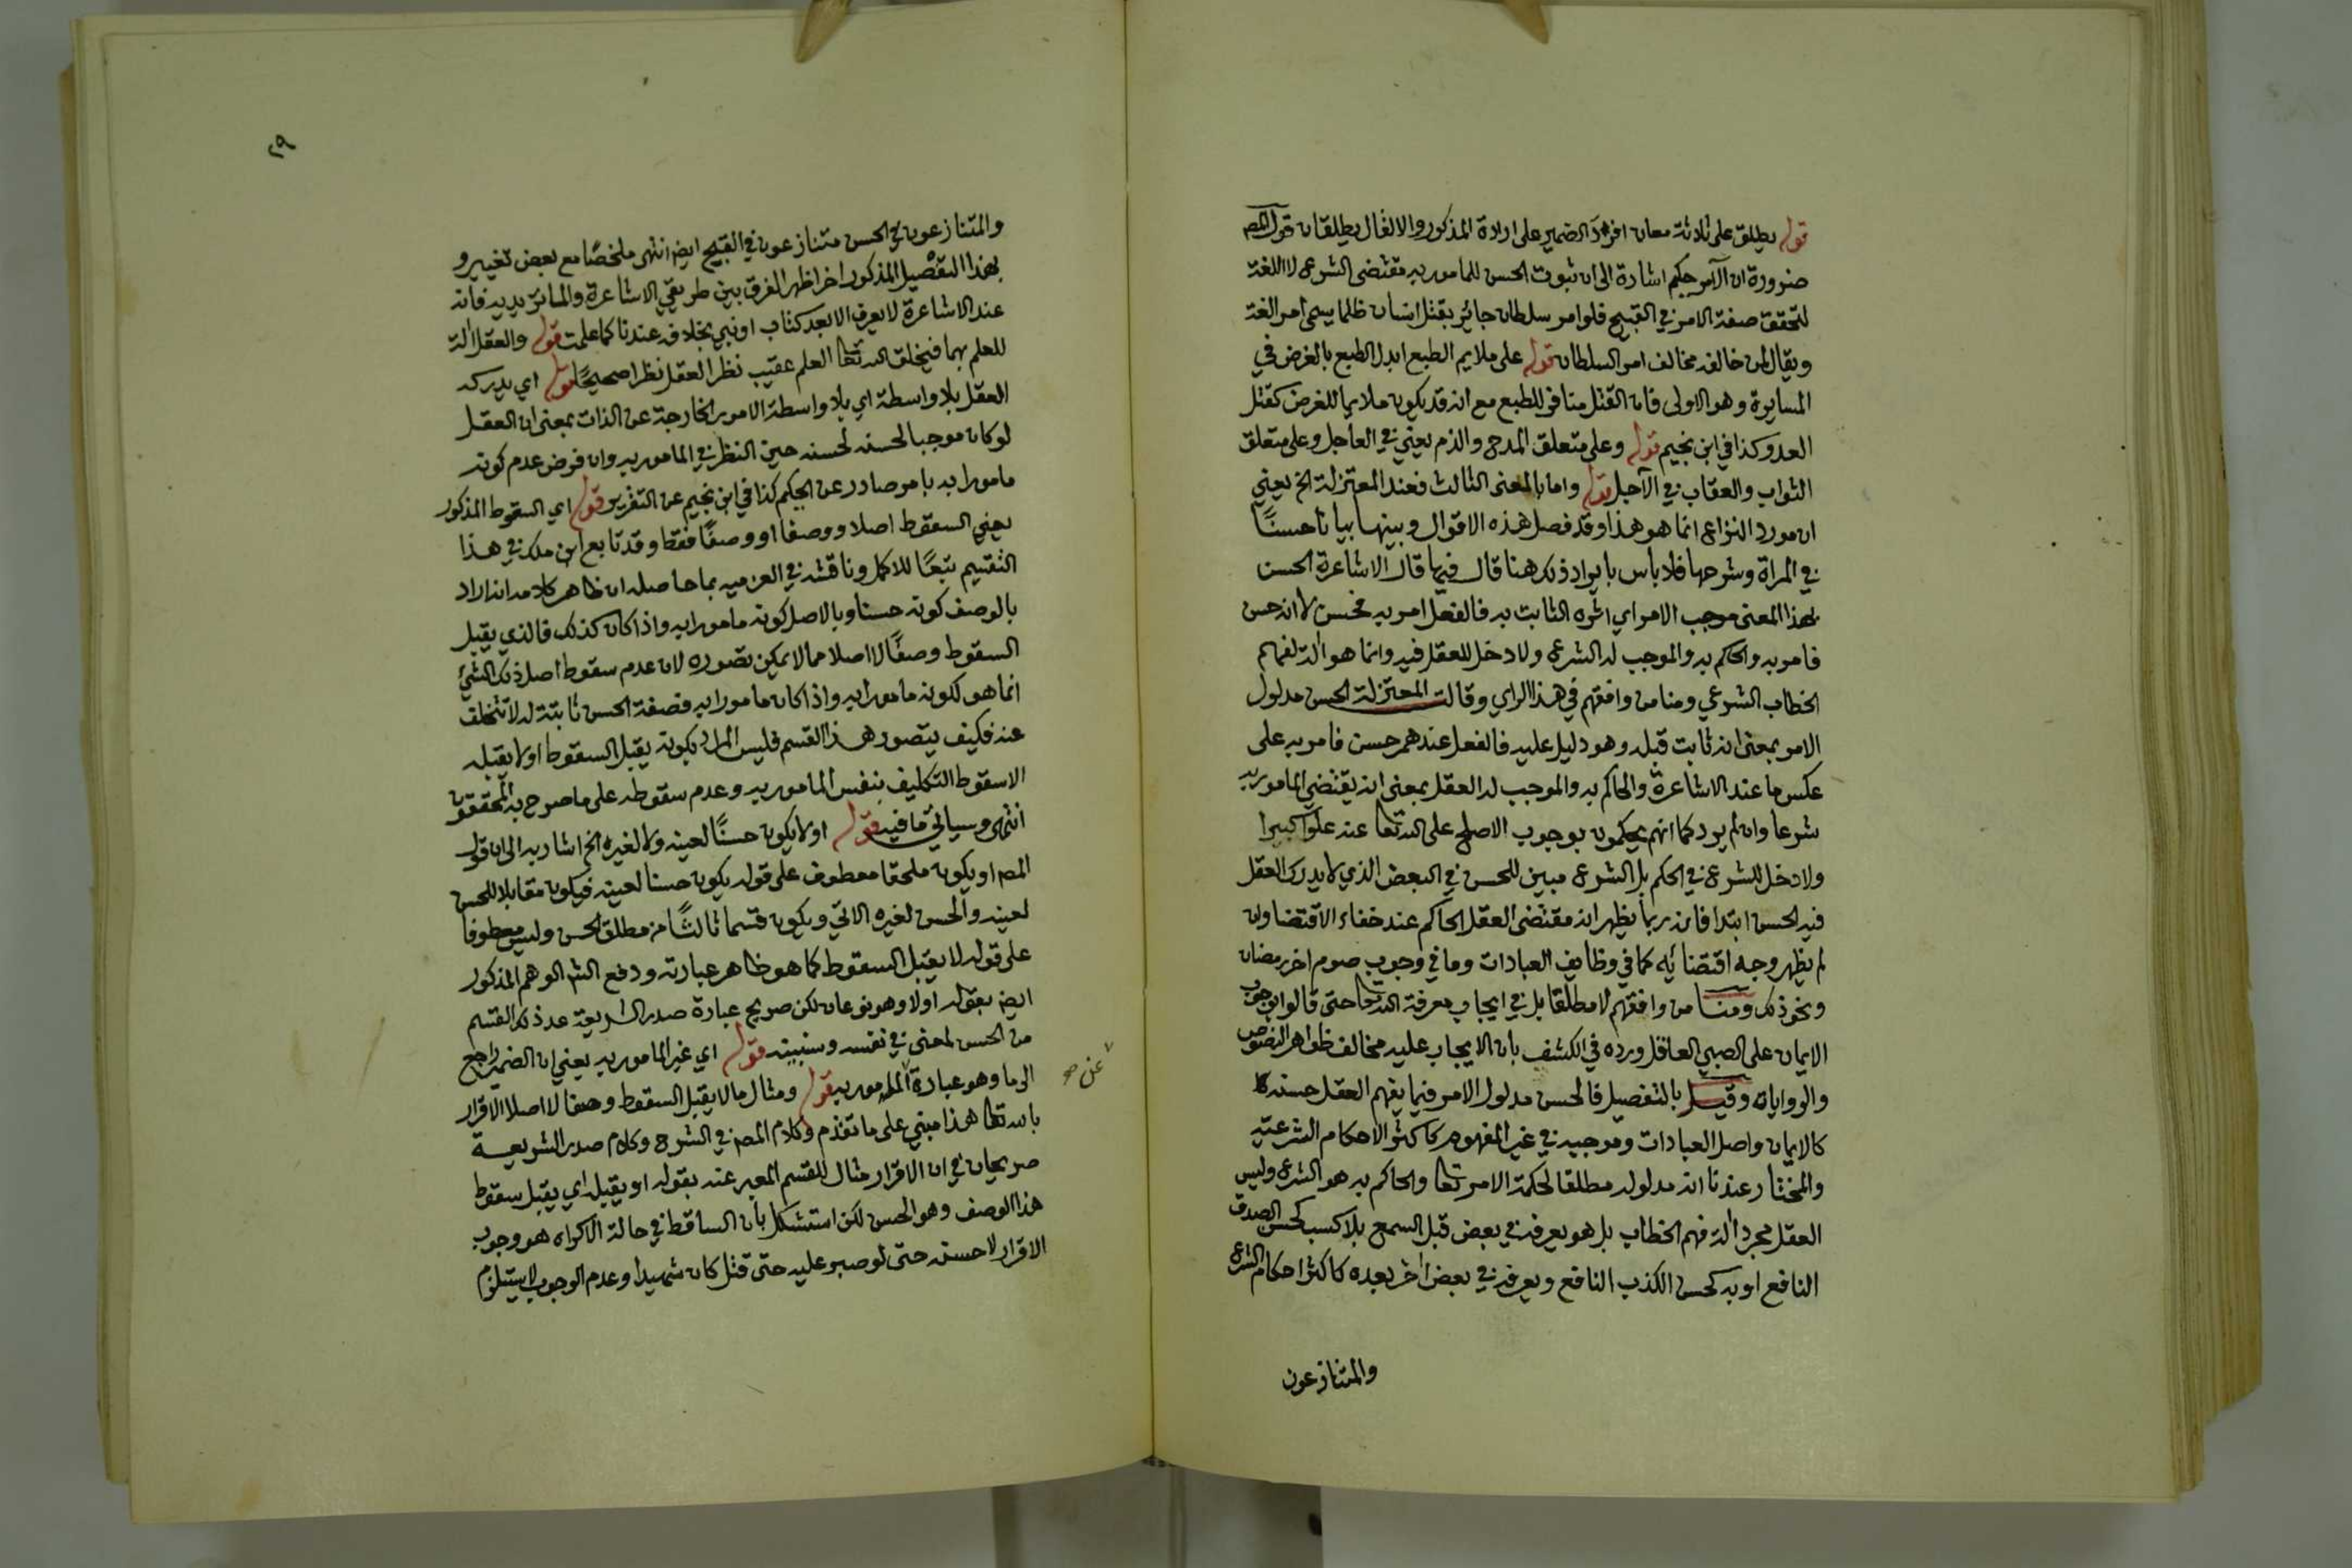 قوله يطلق على ثلاثة معان افراد الضمير على ارادة المذكور والا فقال يطلقان قول المصـ
ضرورة ان الآمر حكيم اشارة الى ان ثبوت الحسن للمامور به مقتضى الشرع لا اللغة
لتحقق صفة الامر في القبيح فلو امر سلطان جائر بقتل انسان ظلما يسمى امرا لغة
ويقال لمن خالفه مخالف امر السلطان قوله على ملايم الطبع ابدل الطبع بالغرض في
المسايرة وهو الاولى فان القتل منافر للطبع مع انه قد يكون ملايما للغرض كقتل
العدو وكذا في ابن نجيم قوله وعلى متعلق المدح والذم يعني في العاجل وعلى متعلق
الثواب والعقاب في الآجل قوله واما بالمعنى الثالث فعند المعتزلة الخ يعني
ان مورد النزاع انما هو هذا وقد فصل هذه الاقوال وبينها بيانا حسنًا
في المراة وشرحها فلا باس بايراد ذلك هنا قال فيها قال الاشاعرة الحسن
بهذا المعنى موجب الامر اي اثره الثابت به فالفعل امر به فحسن لا انه حسن
فامر به والحاكم به والموجب له الشرع ولا دخل للعقل فيه وانما هو الة لفهم
الخطاب الشرعي ومنا من وافقهم في هذا الراي وقالت المعتزلة الحسن مدلول
الامر بمعنى انه ثابت قبله وهو دليل عليه فالفعل عندهم حسن فامر به على
عكس ما عند الاشاعرة والحاكم به والموجب له العقل بمعنى انه يقتضي المامور به
شرعا وان لم يرد كما انهم يحكمون بوجوب الاصلح على الله تعا عنه علوا كبيرا
ولا دخل للشرع في الحكم بل الشرع مبين للحسن في البعض الذي لا يدرك العقل
فيه الحسن ابتدا فانه ربما يظهر انه مقتضى العقل الحاكم عند خفاء الاقتضا وان
لم يظهر وجه اقتضائه كما في وظايف العبادات وما في وجوب صوم اخر رمضان
ونحو ذلك ومنا من وافقهم لا مطلقا بل في ايجاب معرفة الله تعا حتى قالوا بوجوب
الايمان على الصبي العاقل ورده في الكشف بان الايجاب عليه مخالف ظواهر النصوص
والروايات وقيل بالتفصيل فالحسن مدلول الامر فيما يفهم العقل حسنه
كالايمان واصل العبادات وموجبه في غير المفهوم كاكثر الاحكام الشرعية
والمختار عندنا انه مدلوله مطلقا لحكمة الامر تعا والحاكم به هو الشرع وليس
العقل مجرد الة فهم الخطاب بل هو يعرفه في بعض قبل السمع بلا كسب كحسن الصدق
النافع او به كحسن الكذب النافع ويعرفه في بعض اخر بعده كاكثر احكام الشرع
والمتنازعون
٢٩
والمتنازعون في الحسن متنازعون في القبيح ايضا انتهى ملخصًا مع بعض تغيير و
بهذا التفصيل المذكور اخرا ظهر الفرق بين طريقي الاشاعرة والماتريدية فانه
عند الاشاعرة لا يعرف الا بعد كتاب او نبي بخلافه عندنا كما علمت قوله والعقل الة
للعلم بهما فيخلق الله تعا العلم عقيب نظر العقل نظرا صحيحًا قوله اي يدركه
العقل بلا واسطة اي بلا واسطة الامور الخارجة عن الذات بمعنى ان العقل
لو كان موجبا لحسنه لحسنه حين النظر في المامور به وان فرض عدم كونه
مامورا به بامر صادر عن الحكيم كذا في ابن نجيم عن التقرير قوله اي السقوط المذكور
يعني السقوط اصلا ووصفا او وصفًا فقط وقد تابع ابن ملك في هذا
التقسيم تبعًا للاكمل وناقشه في العزمية بما حاصله ان ظاهر كلامه انه اراد
بالوصف كونه حسنا وبالاصل كونه مامورا به واذا كان كذلك فالذي يقبل
السقوط وصفًا لا اصلا مما لا يمكن تصوره لان عدم سقوط اصل ذلك الشيئ
انما هو لكونه مامورا به واذا كان مامورا به فصفة الحسن ثابتة له لا تتخلف
عنه فكيف يتصور هذا القسم فليس المراد بكونه يقبل السقوط او لا يقبله
الا سقوط التكليف بنفس المامور به وعدم سقوطه على ما صرح به المحققون
انتهى وسياتي ما فيه قوله او لا يكون حسنًا لعينه ولا لغيره الخ اشار به الى ان قول
المصـ او يكون ملحقا معطوف على قوله يكون حسنا لعينه فيكون مقابلا للحسن
لعينه والحسن لغيره الاتي ويكون قسما ثالثًا من مطلق الحسن وليس معطوفا
على قوله لا يقبل السقوط كما هو ظاهر عبارته ودفع الشـ الوهم المذكور
ايضـ بقوله اولا وهو نوعان لكن صريح عبارة صدر الشريعة عد ذلك القسم
من الحسن لمعنى في نفسه وسنبينه قوله اي غير المامور به يعني ان الضمير راجع
الى ما وهو عبارة المامور به قوله ومثال ما لا يقبل السقوط وصفا لا اصلا الاقرار
عن صح
بالله تعا هذا مبني على ما تقدم وكلام المصـ في الشرح وكلام صدر الشريعة
صريحان في ان الاقرار مثال للقسم المعبر عنه بقوله او يقبله اي يقبل سقوط
هذا الوصف وهو الحسن لكن استشكل بان الساقط في حالة الاكراه هو وجوب
الاقرار لا حسنه حتى لو صبر عليه حتى قتل كان شهيدا وعدم الوجوب لا يستلزم